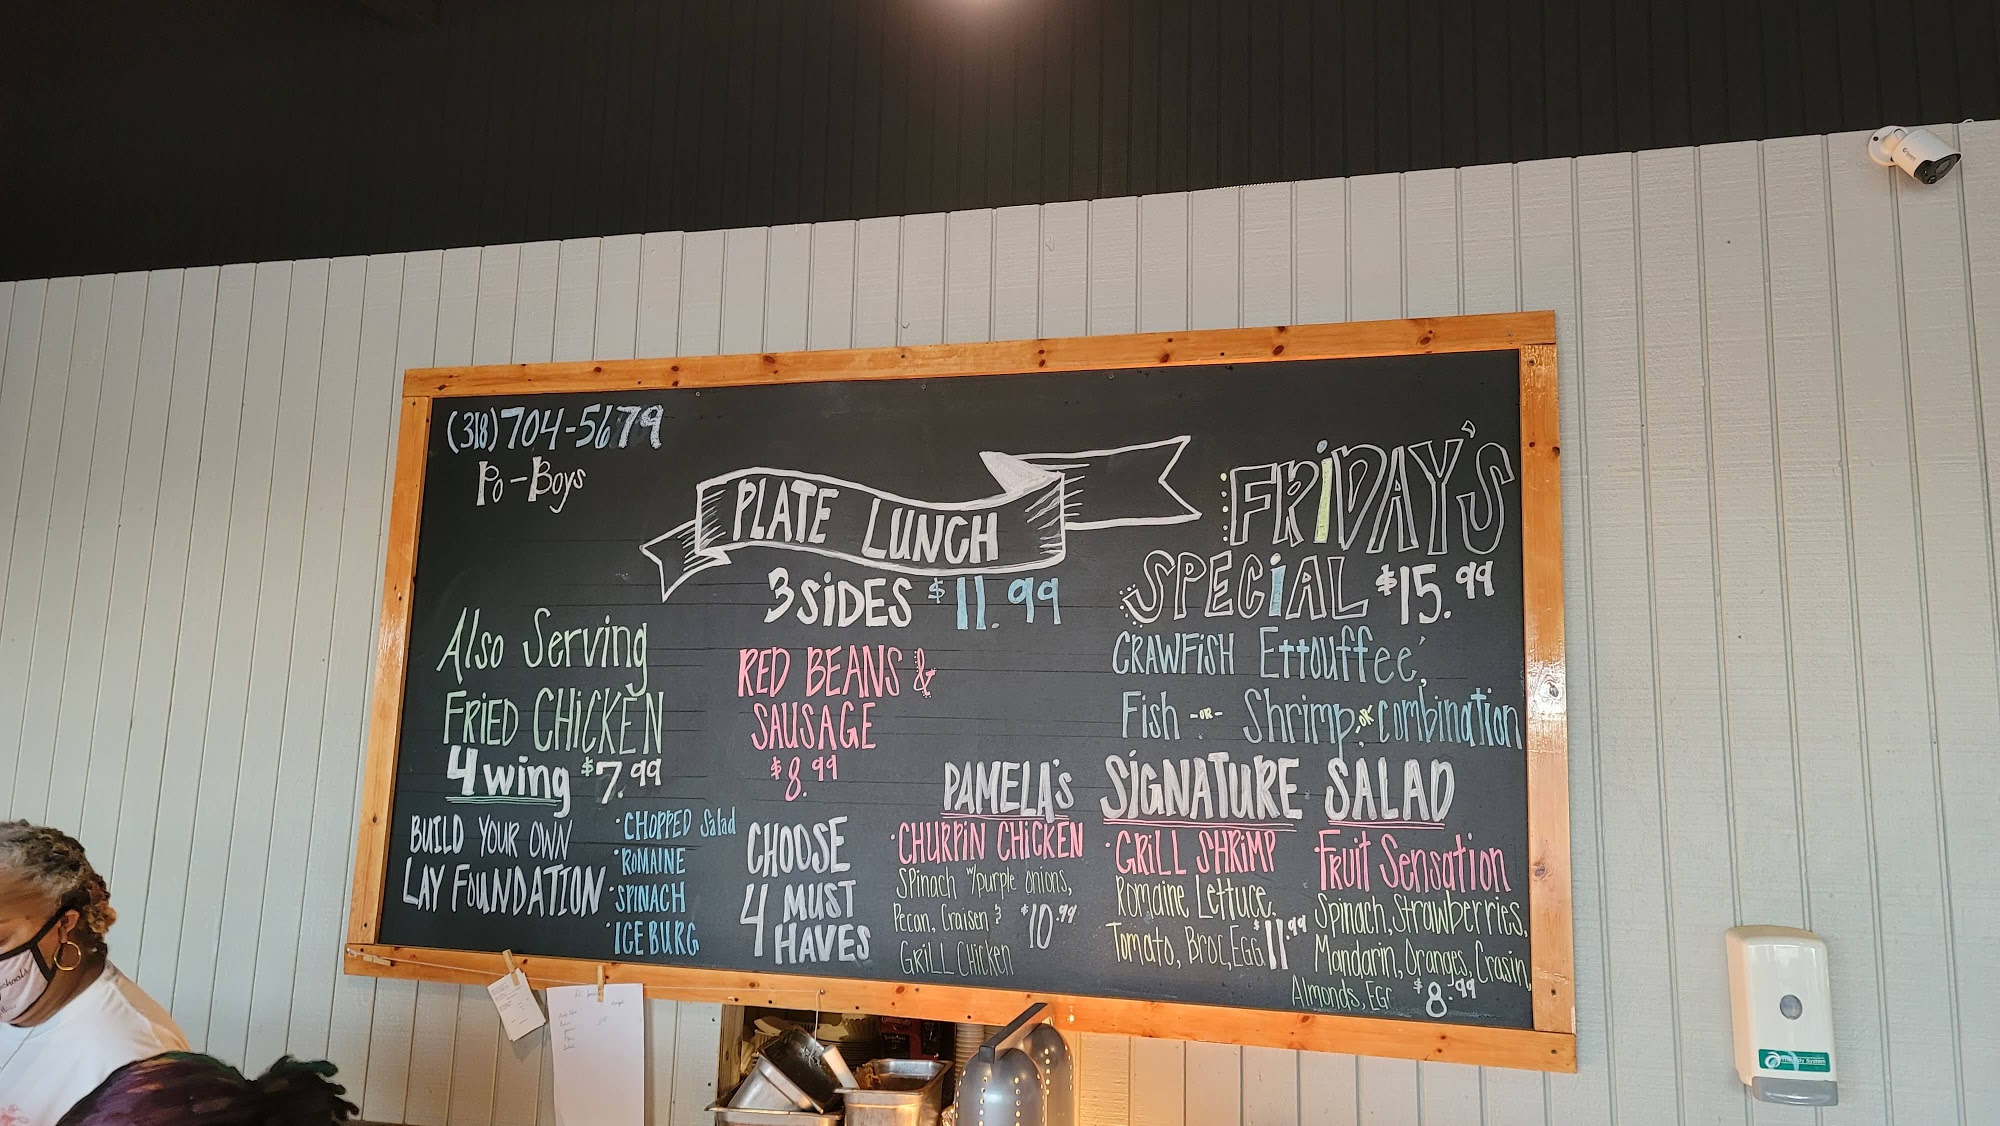 (318) 704-5679
Po-Boys
PLATE LUNCH
3 SiDES $11.99
FRiDAY'S
SPECiAL $15.99
CRAWFiSH Ettouffee,
Fish -or- Shrimp, or combination
Also Serving
FRiED CHiCKEN
4 wing $7.99
RED BEANS &
SAUSAGE
$8.99
BUILD YOUR OWN
LAY FOUNDATION
• CHOPPED Salad
• ROMAINE
• SPINACH
• ICEBURG
CHOOSE
4 MUST
HAVES
PAMELA'S SiGNATURE SALAD
• CHURPIN CHICKEN
Spinach w/purple onions,
Pecan, Craisen & $10.99
GRiLL CHicken
• GRiLL SHRiMP
Romaine Lettuce,
Tomato, Broc, Egg $11.99
• FRuit Sensation
Spinach, Strawberries,
Mandarin, Oranges, Crasin,
Almonds, Egg $8.99